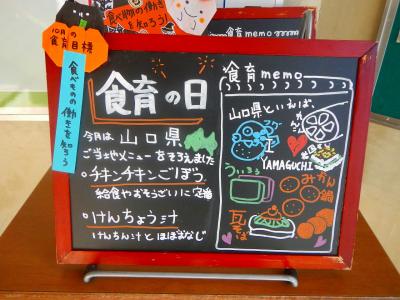 10月の
食育目標
食べものの働きを知ろう
食べ物の働き
を知ろう!
食育memo
食育の日
今月は 山口県
ご当地メニューをそろえました
・チキンチキンごぼう
給食やおそうざいに定番
・けんちょう汁
けんちん汁とほぼおなじ
食育memo
山口県といえば、
フグ
れんこん
I
YAMAGUCHI
岩国寿司
ういろう
みかん鍋
瓦そば